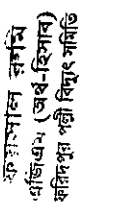 রশ্মি
এজিএম (অর্থ-হিসাব)
ফরিদপুর পল্লী বিদ্যুৎ সমিতি